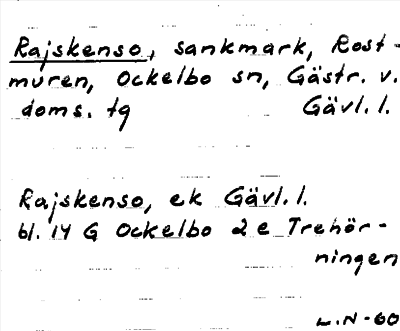 Rajskenso, sankmark, Rost-
muren, Ockelbo sn, Gästr. v.
doms. tg Gävl. l.
Rajskenso, ek Gävl. l.
bl. 14 G Ockelbo 2 e Trehör-
ningen
L.N-60